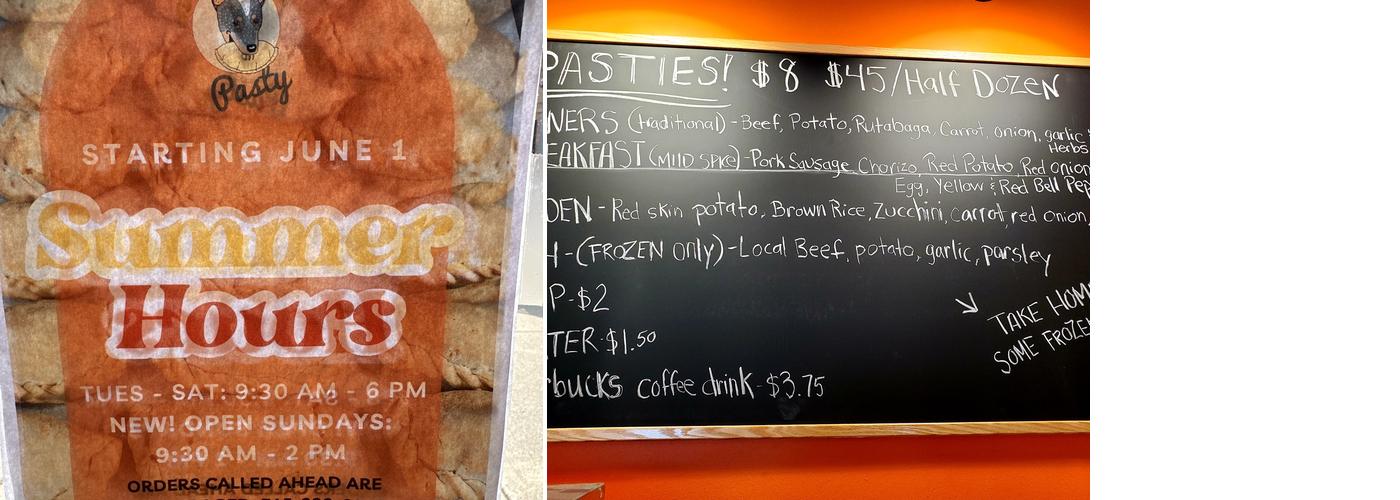 Pasty
STARTING JUNE 1
Summer
Hours
TUES - SAT: 9:30 AM - 6 PM
NEW! OPEN SUNDAYS:
9:30 AM - 2 PM
ORDERS CALLED AHEAD ARE
PASTIES! $8 $45/Half Dozen
NERS (traditional) - Beef, Potato, Rutabaga, Carrot, onion, garlic
Herbs
EAKFAST (MILD SPICE) - Pork Sausage, Chorizo, Red Potato, Red onion
Egg, Yellow & Red Bell Pep
DEN - Red skin potato, Brown Rice, Zucchini, carrot, red onion,
H - (FROZEN only) - Local Beef, potato, garlic, parsley
P - $2
TER - $1.50
rbucks coffee drink - $3.75
TAKE HOM
SOME FROZE